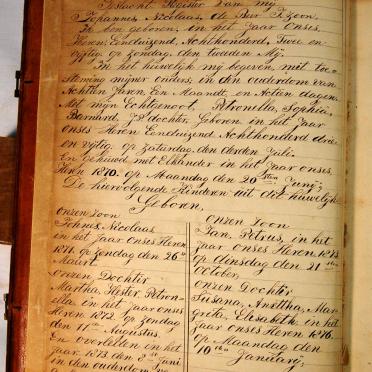 Geslacht Register van mij
Johannes, Nicolaas, de Beer P. zoon.
Ik ben geboren, in het Jaar onses,
Heren, Eenduizend, Achthonderd, Twee en
vijftig op Zondag, den tweeden Mij,
In het huwelijk mij begeven, met toe
steming mijner ouders, in den ouderdom van
Achtien Jaren, Een Maandt, en Actien dagen,
Met mijn Echtgenoot, Petronella, Sophia,
Barnard, JP dochter, Geboren in het Jaar
onses Heren Eenduizend Achthonderd drie
en vijtig, op zaturdag, den derden Juli
En Gehuwd met Elkander in het jaar onses
Heren 1870. op Maandag den 20sten Junij,
De hiervolgende Kinderen uit die huwelijk
Geboren,
onzen zoon
Johns, Nicolaas
in het jaar onses Heren
1871. op Zondag den 26ste
Maart.
onzen Dochter
Martha, Hester, Petron-
ella, in het jaar onses
Heren 1872. op Zondag
den 11de Augustus.
En overleden in het
jaar, 1873. den Junij
in den ouderdom
onzen Zoon
Jan, Petrus, in het
jaar onses Heren, 1873
op dinsdag den 21ste
October,
onzen Dochter
Susana, Anettha, Mar
greta, Elisabeth, in het
jaar onses Heren 1876.
op Maandag den
10den Januarij,